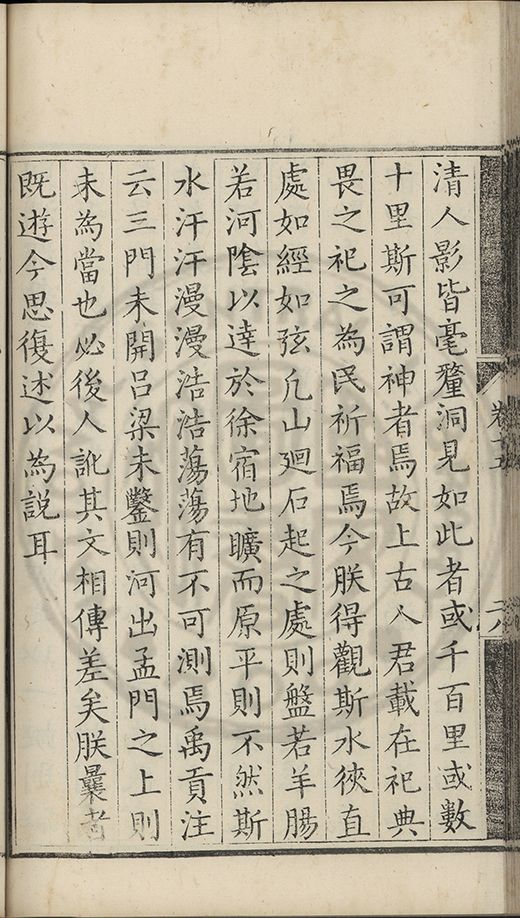 卷十五
六
清人影皆毫釐洞見如此者或千百里或數
十里斯可謂神者焉故上古人君載在祀典
畏之祀之為民祈福焉今朕得觀斯水徑直
處如經如弦凢山廻石起之處則盤若羊腸
若河陰以達於徐宿地曠而原平則不然斯
水汗汗漫漫浩浩蕩蕩有不可測焉禹貢注
云三門未開呂梁未鑿則河出孟門之上則
未為當也必後人訛其文相傳差矣朕曩者
既遊今思復述以為說耳